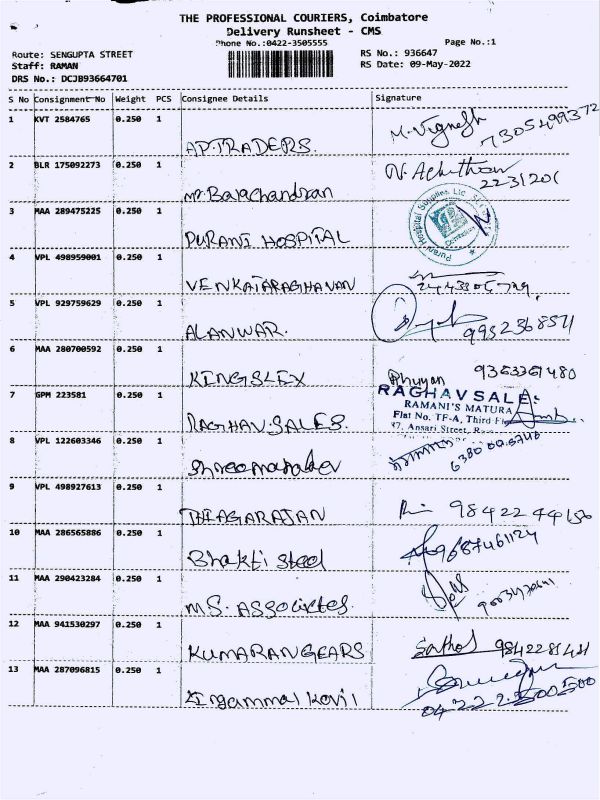 THE PROFESSIONAL COURIERS, Coimbatore
Delivery Runsheet - CMS
Phone No.:0422-3505555
Page No.:1
Route: SENGUPTA STREET
RS No.: 936647
Staff: RAMAN
RS Date: 09-May-2022
DRS No.: DCJB93664701
S No Consignment No Weight PCS Consignee Details Signature
1 KVT 2584765 0.250 1
AP.TRADERS. M.Vignesh 7305499372
2 BLR 175092273 0.250 1
Mr Balachandran 2231201
3 MAA 289475225 0.250 1
PURANI HOSPITAL Purani Hospital Supplies
4 VPL 498959001 0.250 1
VENKATARAGHAVAN
5 VPL 929759629 0.250 1
ALANWAR. 9952368571
6 MAA 280700592 0.250 1
KINGSLEX 9363361480
7 GPM 223581 0.250 1
RAGHAV SALES. RAGHAV SALE
RAMANI'S MATURA
Flat No. TF-A, Third
Ansari Street,
8 VPL 122603346 0.250 1
Shreemahadev
9 VPL 498927613 0.250 1
THIAGARAJAN
10 MAA 286565886 0.250 1
Bhakti steel 9687461124
11 MAA 290423284 0.250 1
M.S. ASSociates.
12 MAA 941530297 0.250 1
KUMARAN GEARS
13 MAA 287096815 0.250 1